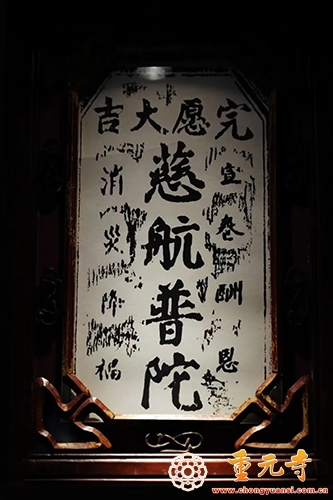 完愿大吉
宣卷酬恩
慈航普陀
消灾降福
重元寺
www.chongyuansi.com.cn